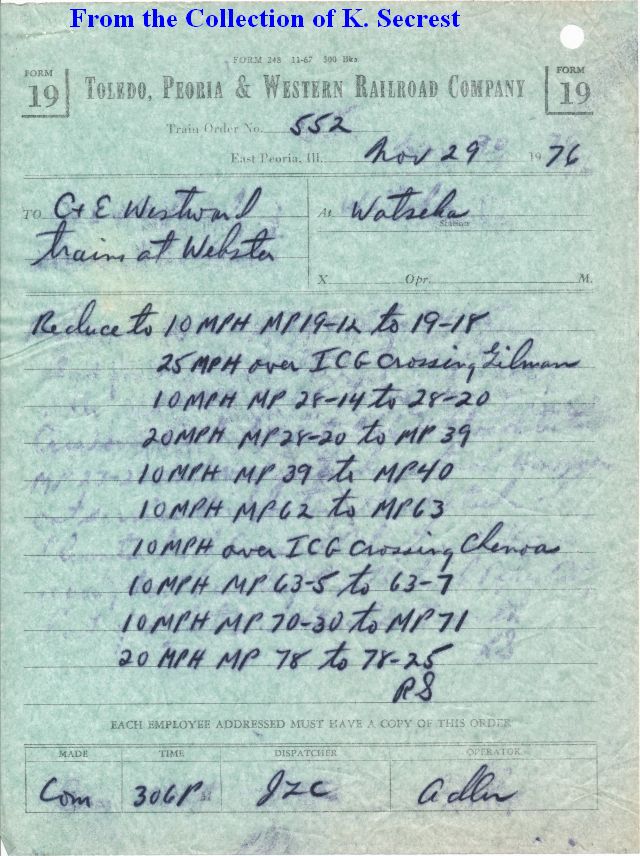 From the Collection of K. Secrest
FORM 248 11-67 500 Bks
FORM 19 TOLEDO, PEORIA & WESTERN RAILROAD COMPANY FORM 19
Train Order No. 552
East Peoria, Ill. Nov 29 1976
TO C+E Westward At Watseka
Station
trains at Webster
X Opr. M.
Reduce to 10 MPH MP 19-12 to 19-18
25 MPH over ICG Crossing Gilman
10 MPH MP 28-14 to 28-20
20 MPH MP 28-20 to MP 39
10 MPH MP 39 to MP 40
10 MPH MP 62 to MP 63
10 MPH over ICG Crossing Chenoa
10 MPH MP 63-5 to 63-7
10 MPH MP 70-30 to MP 71
20 MPH MP 78 to 78-25
RS
EACH EMPLOYEE ADDRESSED MUST HAVE A COPY OF THIS ORDER
MADE TIME DISPATCHER OPERATOR
Com 306P M JLC Adler